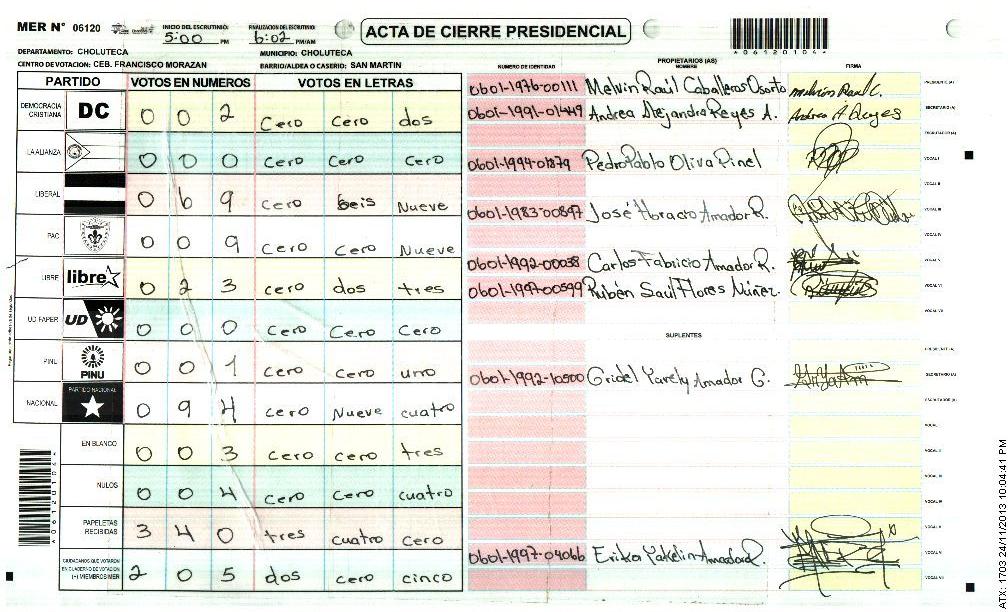 MER N° 06120
INICIO DEL ESCRUTINIO: 5:00 PM
FINALIZACION DEL ESCRUTINIO 6:02 PM/AM
ACTA DE CIERRE PRESIDENCIAL
A06120104A
DEPARTAMENTO: CHOLUTECA
MUNICIPIO: CHOLUTECA
CENTRO DE VOTACION: CEB. FRANCISCO MORAZAN
BARRIO/ALDEA O CASERIO: SAN MARTIN
PARTIDO VOTOS EN NUMEROS VOTOS EN LETRAS
DEMOCRACIA CRISTIANA DC 0 0 2 Cero Cero dos
LA ALIANZA 0 0 0 Cero Cero Cero
LIBERAL 0 6 9 Cero Seis Nueve
PAC 0 0 9 Cero Cero Nueve
LIBRE libre 0 2 3 Cero dos tres
UD FAPER UD 0 0 0 Cero Cero Cero
PINU PINU 0 0 1 Cero Cero uno
NACIONAL PARTIDO NACIONAL 0 9 4 Cero Nueve cuatro
EN BLANCO 0 0 3 Cero Cero tres
NULOS 0 0 4 Cero Cero cuatro
PAPELETAS RECIBIDAS 3 4 0 tres cuatro cero
CIUDADANOS QUE VOTARON EN CUADERNO DE VOTACION (+) MIEMBROS MER 2 0 5 dos cero cinco
A06120104A
PROPIETARIOS (AS)
NUMERO DE IDENTIDAD NOMBRE FIRMA
0601-1976-00111 Melvin Raúl Caballeros Osorto PRESIDENTE (A)
0601-1991-01449 Andrea Alejandra Reyes A. SECRETARIO (A)
ESCRUTADOR (A)
0601-1994-01879 Pedro Pablo Oliva Pinel VOCAL I
VOCAL II
0601-1983-00897 José Horacio Amador R. VOCAL III
VOCAL IV
0601-1992-00038 Carlos Fabricio Amador R. VOCAL V
0601-1997-00599 Rubén Saúl Flores Núñez VOCAL VI
VOCAL VII
SUPLENTES
PRESIDENTE (A)
0601-1992-10500 Gridel Yarely Amador G. SECRETARIO (A)
ESCRUTADOR (A)
VOCAL I
VOCAL II
VOCAL III
VOCAL IV
VOCAL V
0601-1997-04066 VOCAL VI
VOCAL VII
ATX: 1703 24/11/2013 10:04:41 PM